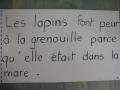 Les lapins font peur
à la grenouille parce
qu'elle était dans la
mare.